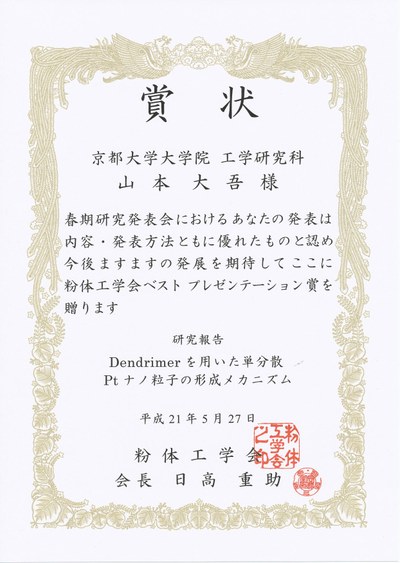 賞状
京都大学大学院 工学研究科
山本大吾様
春期研究発表会におけるあなたの発表は
内容・発表方法ともに優れたものと認め
今後ますますの発展を期待してここに
粉体工学会ベスト プレゼンテーション賞を
贈ります
研究報告
Dendrimer を用いた単分散
Pt ナノ粒子の形成メカニズム
平成21年5月27日
粉体工学会
会長 日高重助
粉体
工学会
之印